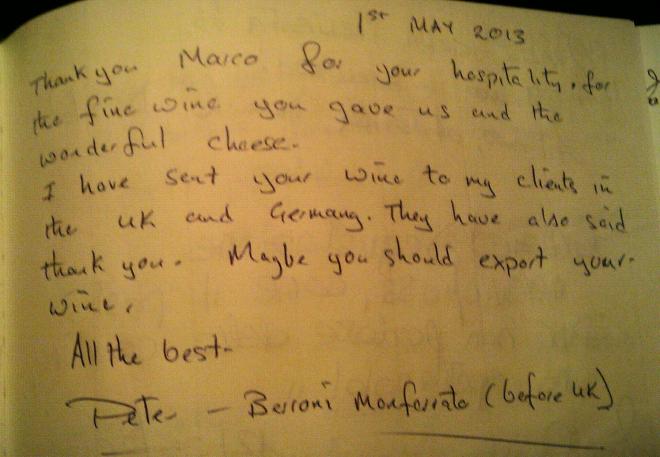 1ST MAY 2013
Thank you Marco for your hospitality, for
the fine wine you gave us and the
wonderful cheese.
I have sent your wine to my clients in
the UK and Germany. They have also said
thank you. Maybe you should export your
wine.
All the best-
Pete - Berroni Monferrato (before UK)